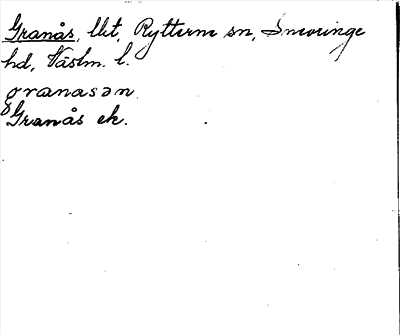 Granås, llt, Rytterne sn, Snevringe
hd, Västm. l.
granasən
Granås ek.